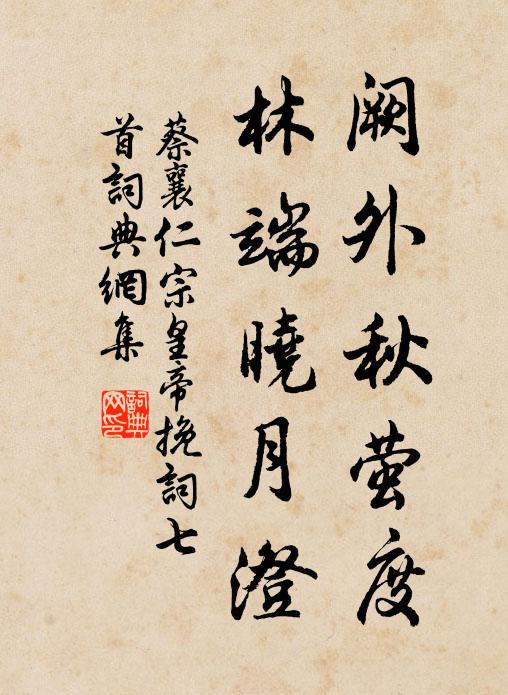 阙外秋萤度
林端曉月澄
蔡襄仁宗皇帝挽詞七
首詞典網集
詞典
网印